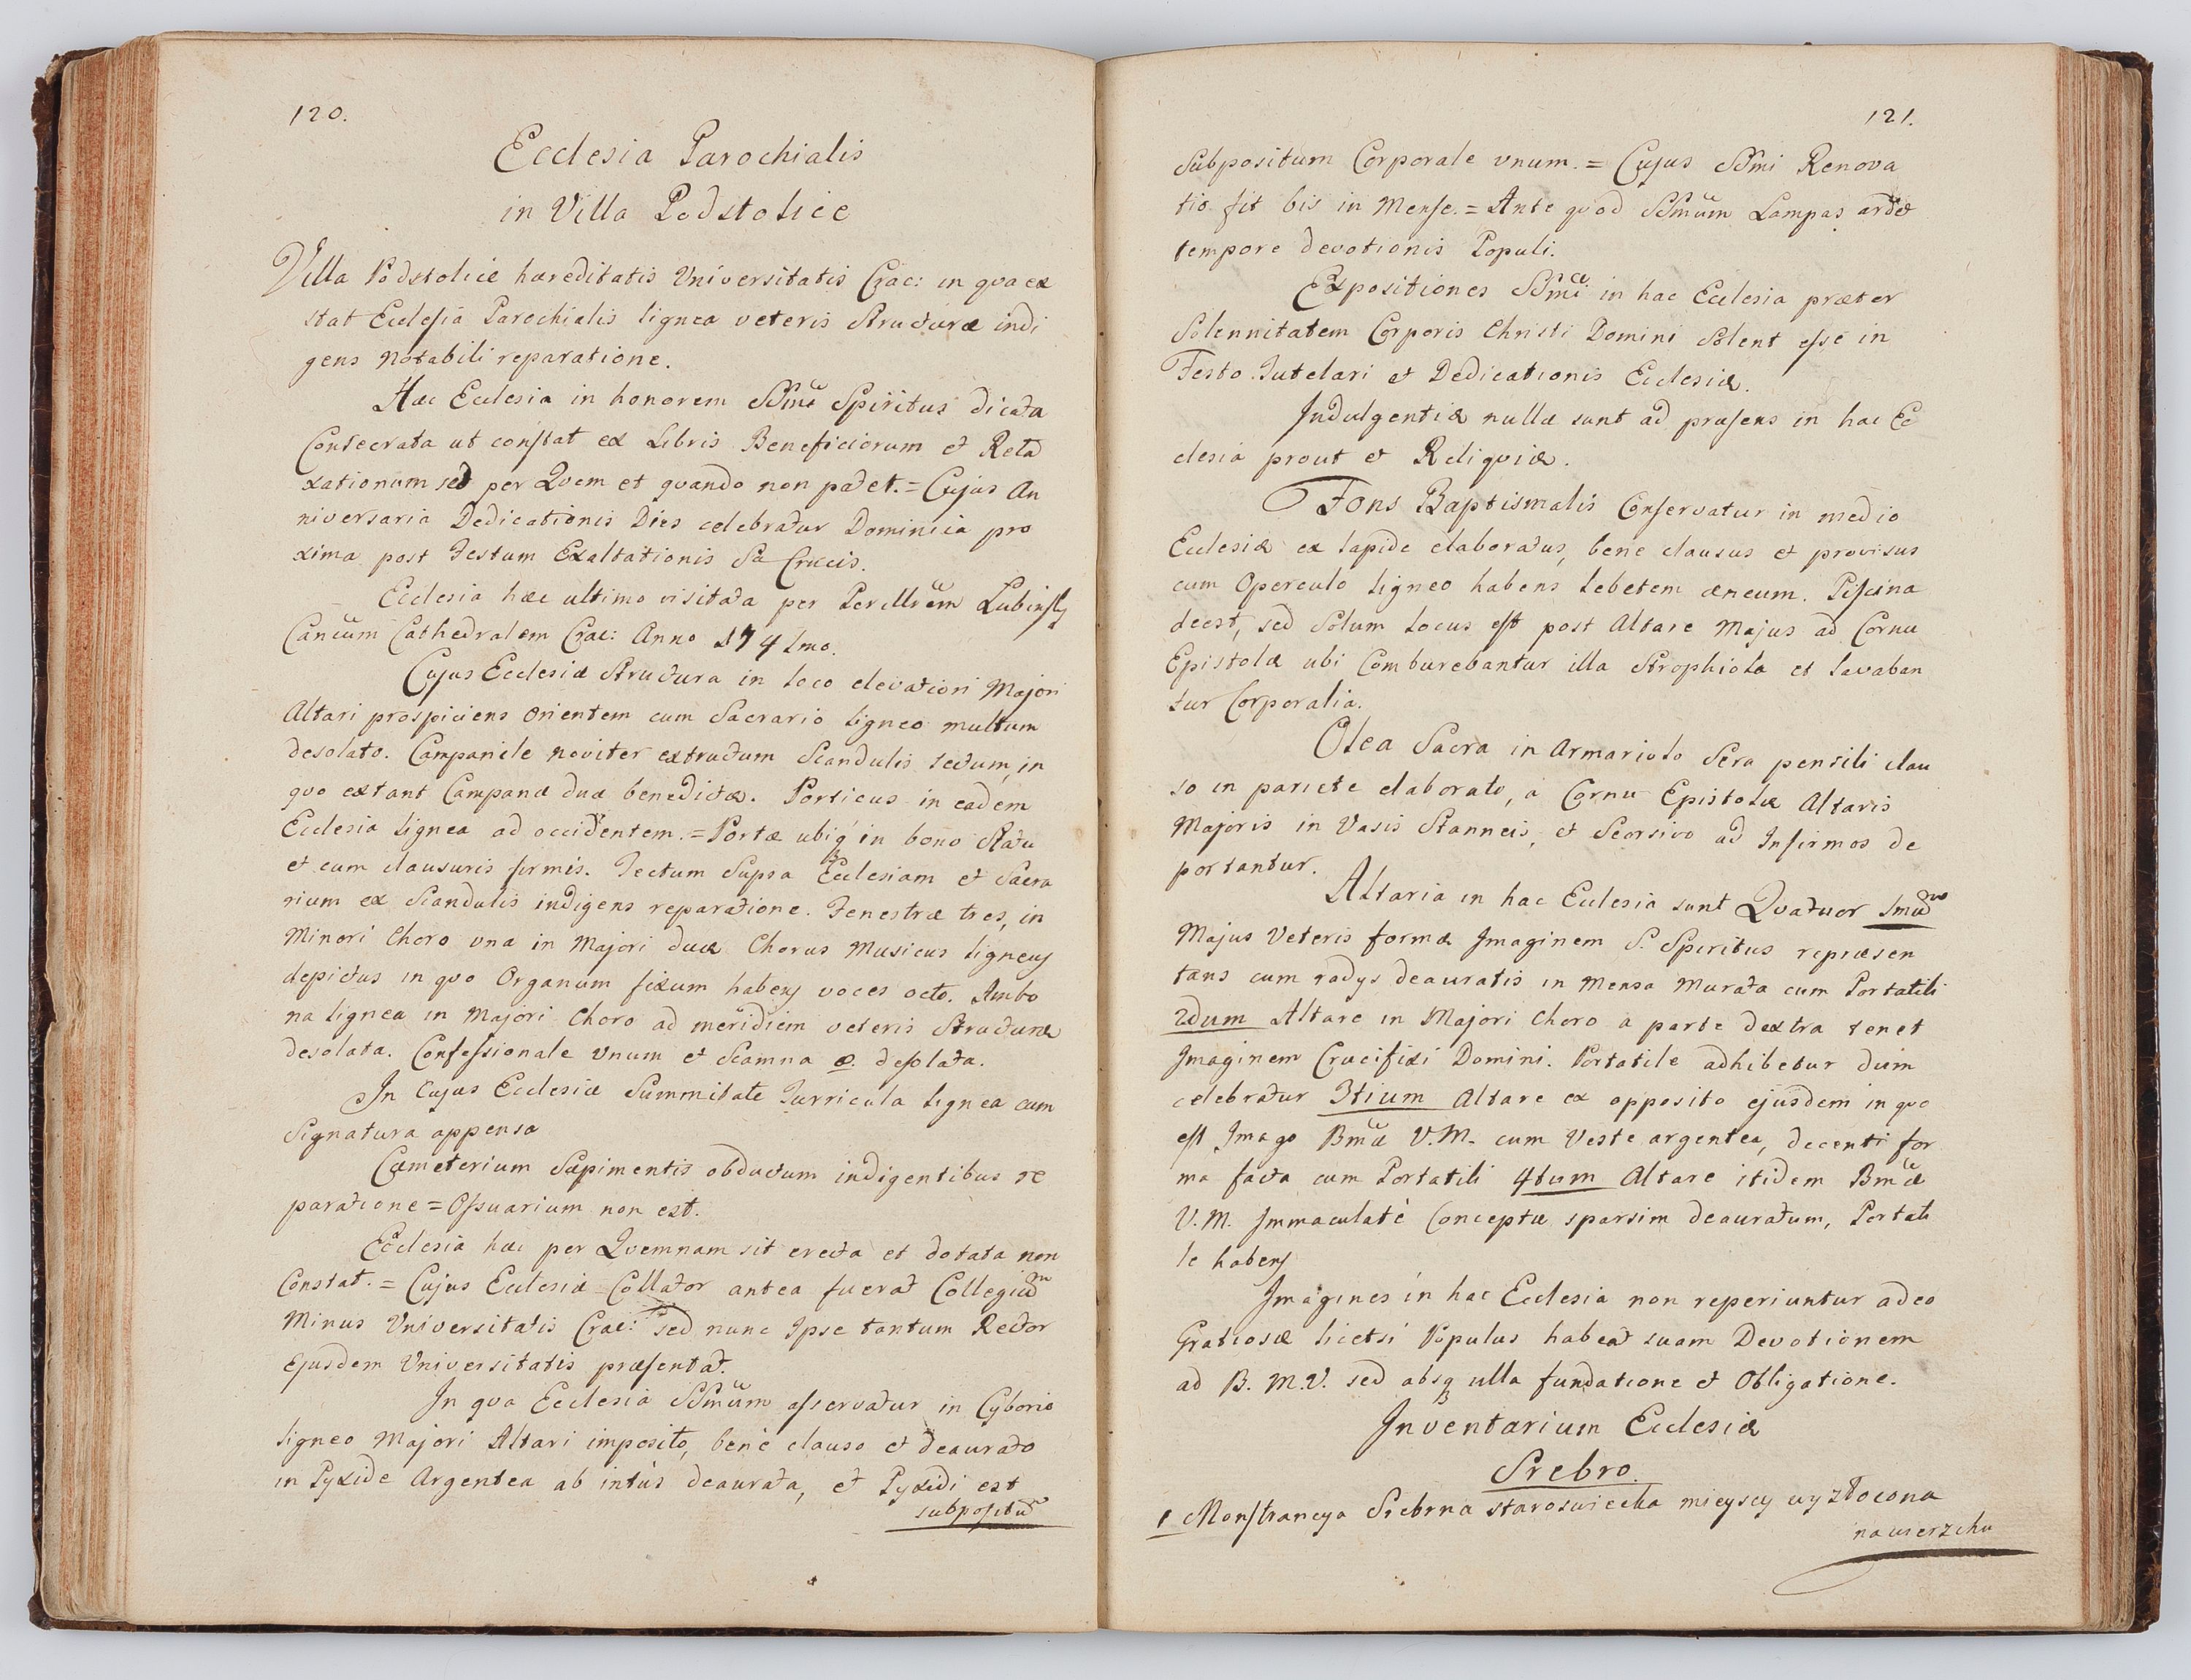 120.
Ecclesia Parochialis
in Villa Podstolice
Villa Podstolice hæreditatis Universitatis Crac: in qva ex
stat Ecclesia Parochialis lignea veteris Structuræ indi
gens notabili reparatione.
Hæc Ecclesia in honorem SSmi Spiritus dicata
Consecrata ut constat ex Libris Beneficiorum et Reta
xationum sed per Qvem et qvando non patet. = Cujus An
niversaria Dedicationis Dies celebratur Dominica pro
xima post Festum Exaltationis Sæ Crucis.
Ecclesia hæc ultimo visitata per Perillrem Lubinsky
Cancum Cathedralem Crac: Anno 1741mo.
Cujus Ecclesiæ Structura in loco elevatiori Majori
Altari prospiciens orientem cum Sacrario ligneo multum
desolato. Campanile noviter extructum Scandulis tectum, in
qvo extant Campanæ duæ benedictæ. Porticus in eadem
Ecclesia lignea ad occidentem. = Portæ ubiq in bono Statu
et cum clausuris firmis. Tectum Supra Ecclesiam et Sacra
rium ex Scandulis indigens reparatione. Fenestræ tres, in
Minori Choro una in Majori duæ Chorus Musicus ligneus
depictus in qvo Organum fixum habens voces octo. Ambo
na lignea in Majori Choro ad meridiem veteris Structuræ
desolata. Confessionale Unum et Scamna 8. desolata.
In Cujus Ecclesiæ Summitate Turricula lignea cum
Signatura appensa
Cæmeterium Sæpimentis obductum indigentibus re
paratione = Ossuarium non est.
Ecclesia hæc per Qvemnam sit erecta et dotata non
Constat. = Cujus Ecclesiæ Collator antea fuerat Collegium
Minus Universitatis Crac: sed nunc Ipse tantum Rector
Ejusdem Universitatis præsentat.
In qva Ecclesia SSmum asservatur in Cyborio
ligneo Majori Altari imposito, benè clauso et deaurato
in Pyxide Argentea ab intùs deaurata, et Pyxidi est
subpositum
121.
Subpositum Corporale unum. = Cujus SSmi Renova
tio fit bis in Mense. = Ante qvod SSmum Lampas ardet
tempore devotionis Populi.
Expositiones SSmi in hac Ecclesia præter
Solennitatem Corporis Christi Domini Solent esse in
Festo Tutelari et Dedicationis Ecclesiæ.
Indulgentiæ nullæ sunt ad præsens in hac Ec
clesia prout et Reliqviæ.
Fons Baptismalis Conservatur in medio
Ecclesiæ ex lapide elaboratus, bene clausus et provisus
cum Operculo ligneo habens Lebetem æneum. Piscina
deest, sed Solum Locus est post Altare Majus ad Cornu
Epistolæ ubi Comburebantur illa Strophiola et lavaban
tur Corporalia.
Olea Sacra in Armariolo Sera pensili clau
so in pariete elaborato, à Cornu Epistolæ Altaris
Majoris in Vasis Stanneis, et Seorsivo ad Infirmos de
portantur.
Altaria in hac Ecclesia sunt Qvatuor 1mum
Majus Veteris formæ Imaginem S. Spiritus repræsen
tans cum radys deauratis in Mensa Murata cum Portatili
2dum Altare in Majori Choro à parte dextra tenet
Imaginem Crucifixi Domini. Portatile adhibetur dum
celebratur 3tium Altare ex opposito ejusdem in qvo
est Imago Bmæ V. M. cum Veste argentea, decenti for
ma facta cum Portatili 4tum Altare itidem Bmæ
V. M. Immaculatè Conceptæ sparsim deauratum, Portati
le habens
Imagines in hac Ecclesia non reperiuntur adeo
Gratiosæ licetsi Populus habeat suam Devotionem
ad B. M. V. sed absq ulla fundatione et Obligatione.
Inventarium Ecclesiæ
Srebro.
1 Monstrancya Srebrna staroswiecka mieyscy wyzłocona
na wierzchu